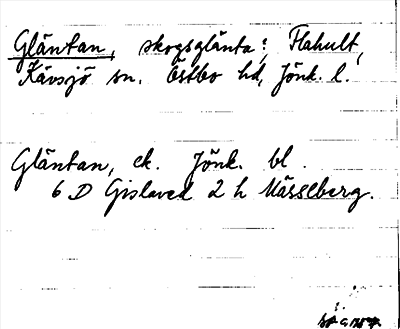 Gläntan, skogsglänta; Flahult,
Kävsjö sn. Östbo hd, Jönk. l.
Gläntan, ek. Jönk. bl.
6 D Gislaved 2 h Mässeberg.